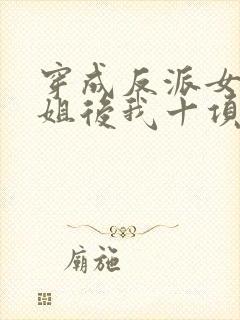 穿成反派女
姐後我十項
廟施